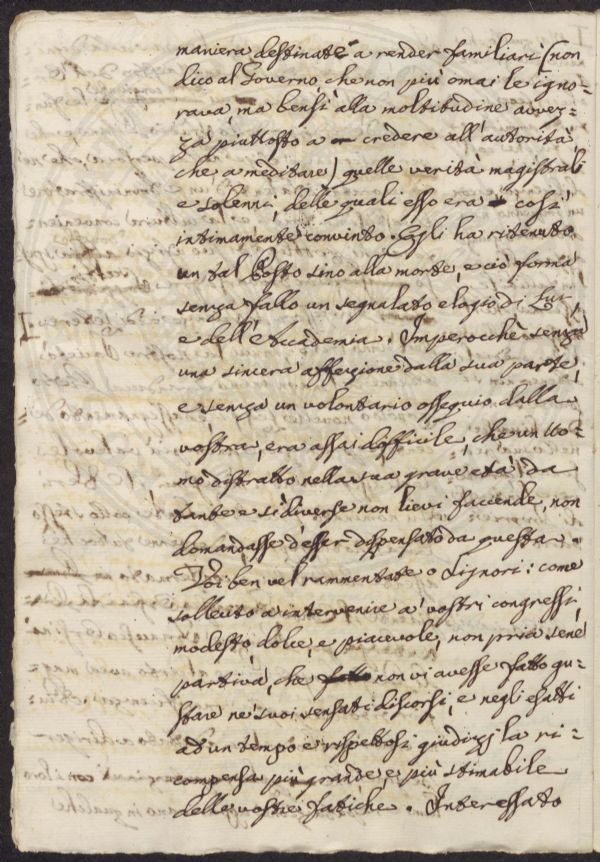 maniera destinate a render familiari (non
dico al Governo, che non più omai le igno=
rava, ma bensì alla moltitudine avvez=
za piuttosto a credere all'autorità
che a meditare) quelle verità magistrali
e solenni, delle quali esso era così
intimamente convinto. Egli ha ritenuto
un tal Posto sino alla morte, e ciò forma
senza fallo un segnalato elogio di Lui,
e dell'Accademia. Imperocchè senza
una sincera affezione dalla sua parte,
e senza un volontario ossequio dalla
vostra, era assai difficile, che un Uo=
mo distratto nella sua grave età da
tante e sì diverse non lievi faccende, non
domandasse d'esser dispensato da questa.
Voi ben vel rammentate o Signori: come
sollecito a intervenire a' vostri congressi,
modesto, dolce, e piacevole, non pria sene
partiva, che non vi avesse fatto gu=
stare ne' suoi sensati discorsi, e negli esatti
ad un tempo e rispettosi giudizj la ri=
compensa più grande, e più stimabile
delle vostre fatiche. Interessato